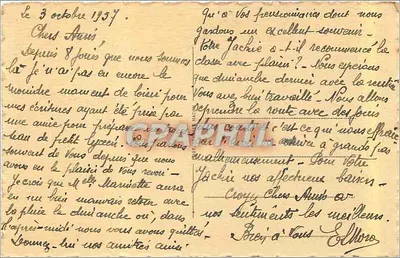 le 3 octobre 1937.
Chers Amis
Depuis 8 jours que nous sommes
là je n'ai pas eu encore le
moindre moment de loisir pour
mes écritures ayant été prise par
une amie pour
de petit lycéen.
souvent de Vous depuis que nous
avons eu le plaisir de Vous revoir -
Je crois que Melle Marisette aura
eu bien mauvais retour avec
la pluie le dimanche où, dans
l'après-midi nous vous avons quittés -
Donnez-lui nos amitiés ainsi
qu'à vos pensionnaires dont nous
gardons un excellent souvenir -
Votre Jackie a-t-il recommencé la
classe avec plaisir? - Nous espérions
que dimanche dernier avec la rentrée
Vous avez bien travaillé - Nous allons
reprendre la route avec des jours
c'est ce que nous
à grands pas
malheureusement - Pour Votre
Jackie nos affectueux baisers
Croyez Chers Amis à
nos sentiments les meilleurs.
Bien à Vous
CPAPHIL.COM